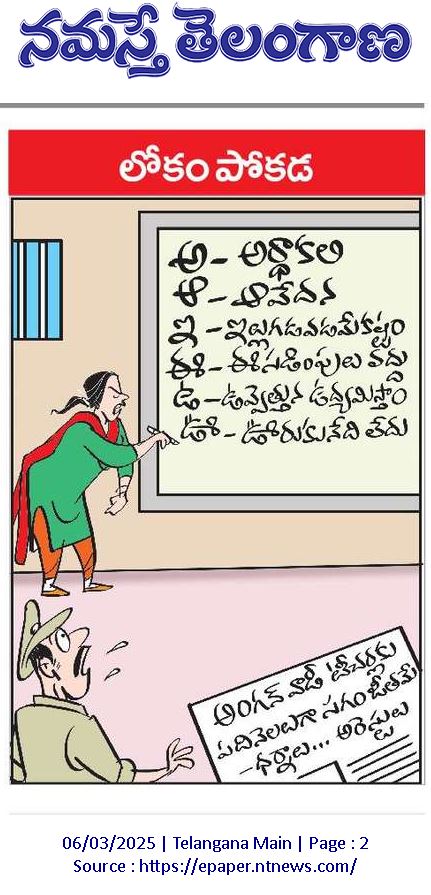 నమస్తే తెలంగాణ
లోకం పోకడ
అ - అర్ధాకలి
ఆ - ఆవేదన
ఇ - ఇల్లుగడవడమేకష్టం
ఈ - ఈసడింపులు వద్దు
ఉ - ఉవ్వెత్తున ఉద్యమిస్తాం
ఊ - ఊరుకునేది లేదు
అంగన్ వాడీ టీచర్లకు
పదినెలలుగా సగం జీతమే
- ధర్నాలు... అరెస్టులు
06/03/2025 | Telangana Main | Page : 2
Source : https://epaper.ntnews.com/